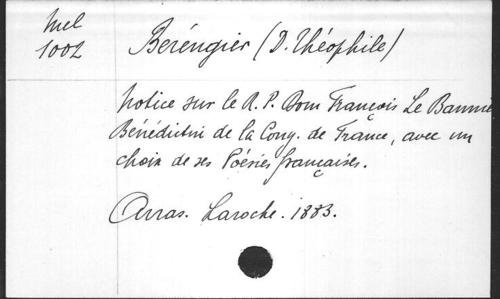 Mel
1002
Bérengier (D. Théophile)
Notice sur le R. P. Dom François Le Bannier
Bénédictin de la Cong. de France, avec un
choix de ses Poésies françaises.
Arras. Laroche. 1883.